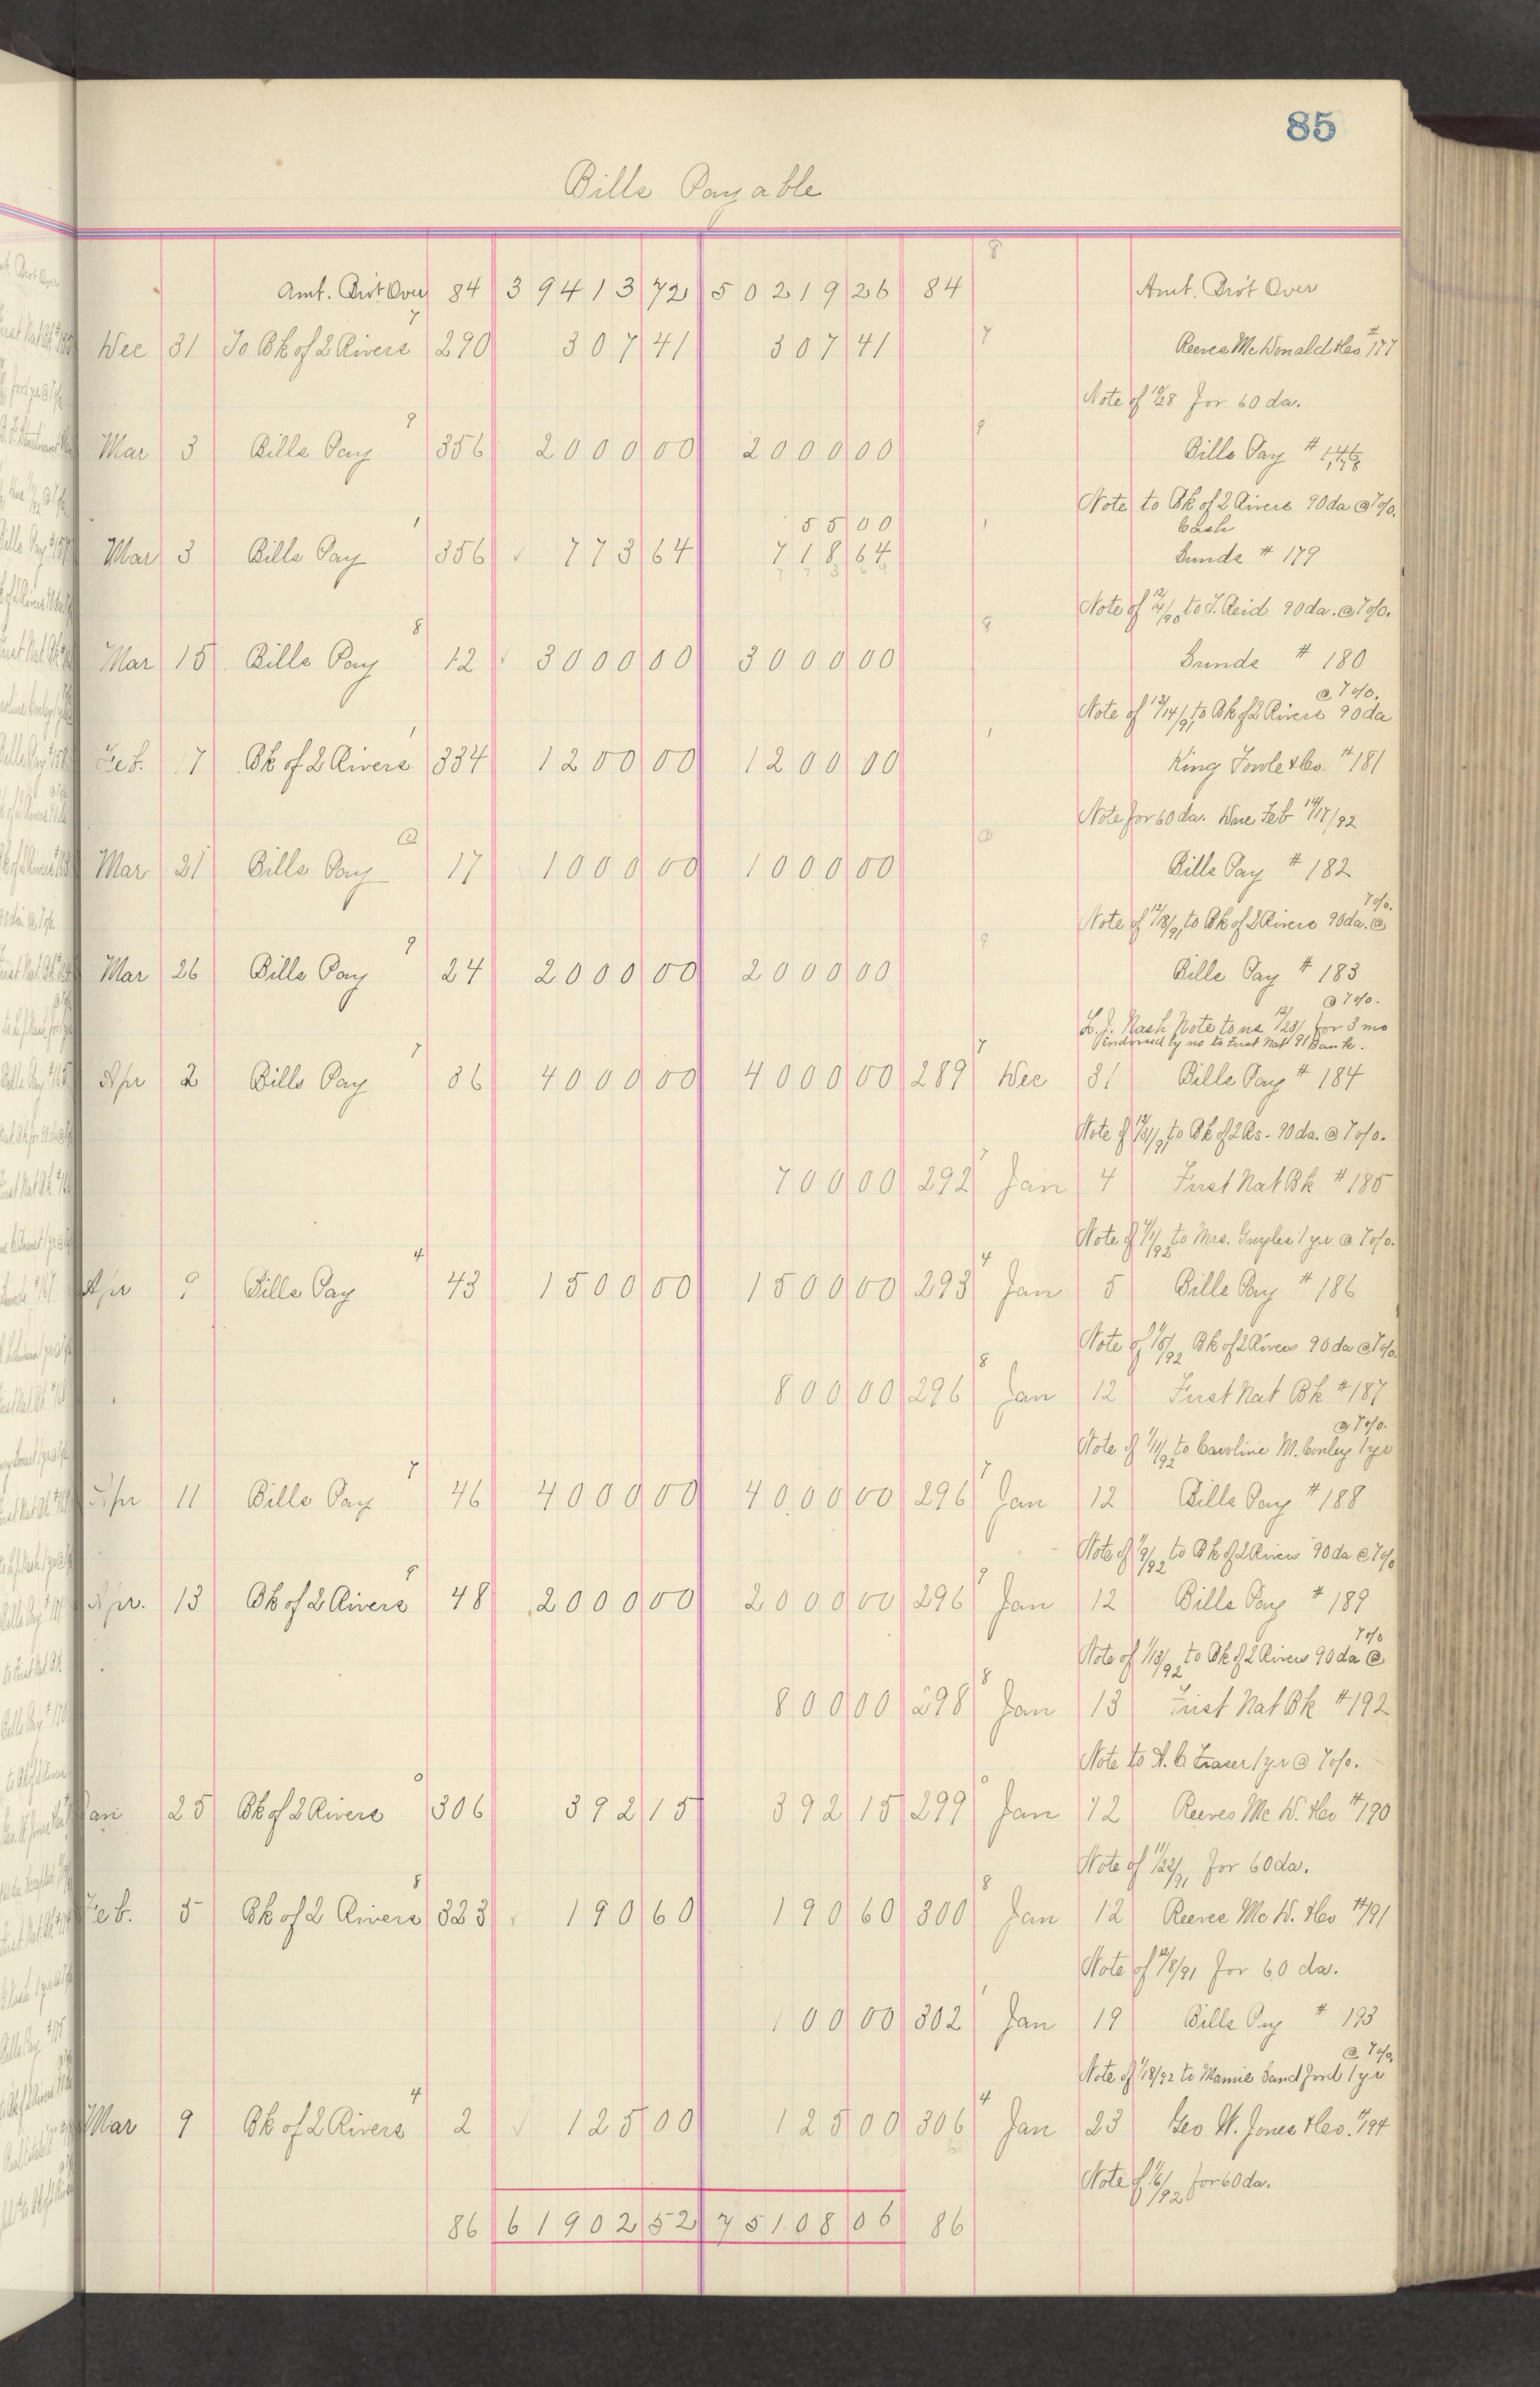 85
Bills Payable
Amt. Brôt Over 84 39413 72 50219 26 84 Amt. Brôt Over
Dec 31 To Bk of 2 Rivers 7 290 307 41 307 41 7 Reeves McDonald & Co #177
Note of 10/28 for 60 da.
Mar 3 Bills Pay 9 356 2000 00 2000 00 9 Bills Pay # 178
Note to Bk of 2 Rivers 90 da @ 7%.
55 00 Cash
Mar 3 Bills Pay 1 356 773 64 718 64 1 Sunds # 179
Note of 12/4/90 to J. Reid 90 da. @ 7%.
Mar 15 Bills Pay 8 12 3000 00 3000 00 8 Sunds # 180
Note of 12/14/91 to Bk of 2 Rivers 90 da @ 7%.
Feb. 17 Bk of 2 Rivers 1 334 1200 00 1200 00 1 King Fowle & Co. #181
Note for 60 da. Due Feb 14/17/92
Mar 21 Bills Pay 17 1000 00 1000 00 Bills Pay # 182
Note of 12/18/91 to Bk of 2 Rivers 90 da. @ 7%.
Mar 26 Bills Pay 9 24 2000 00 2000 00 9 Bills Pay # 183
L. J. Nash Note to us 12/23/91 for 3 mo @ 7%.
endorsed by us to First Nat Bank.
Apr 2 Bills Pay 7 36 4000 00 4000 00 289 7 Dec 31 Bills Pay # 184
Note of 12/31/91 to Bk of 2 Rs - 90 da. @ 7%.
700 00 292 7 Jan 4 First Nat Bk # 185
Note of 1/1/92 to Mrs. Guyles 1 yr @ 7%.
Apr 9 Bills Pay 4 43 1500 00 1500 00 293 4 Jan 5 Bills Pay # 186
Note of 1/5/92 Bk of 2 Rivers 90 da @ 7%.
800 00 296 8 Jan 12 First Nat Bk #187
Note of 1/11/92 to Caroline M. Conley 1 yr @ 7%.
Apr 11 Bills Pay 7 46 4000 00 4000 00 296 7 Jan 12 Bills Pay # 188
Note of 1/9/92 to Bk of 2 Rivers 90 da @ 7%
Apr. 13 Bk of 2 Rivers 9 48 2000 00 2000 00 296 9 Jan 12 Bills Pay # 189
Note of 1/13/92 to Bk of 2 Rivers 90 da @ 7%
800 00 298 8 Jan 13 First Nat Bk #192
Note to A. C. Fraser 1 yr @ 7%.
Jan 25 Bk of 2 Rivers 0 306 392 15 392 15 299 0 Jan 12 Reeves Mc D. & Co #190
Note of 11/22/91 for 60 da.
Feb. 5 Bk of 2 Rivers 8 323 190 60 190 60 300 8 Jan 12 Reeves Mc D. & Co #191
Note of 12/8/91 for 60 da.
100 00 302 1 Jan 19 Bills Pay # 193
Note of 1/18/92 to Mamie Sandford 1 yr @ 7%.
Mar 9 Bk of 2 Rivers 4 2 125 00 125 00 306 4 Jan 23 Geo W. Jones & Co. #194
Note of 1/6/92 for 60 da.
86 61902 52 75108 06 86